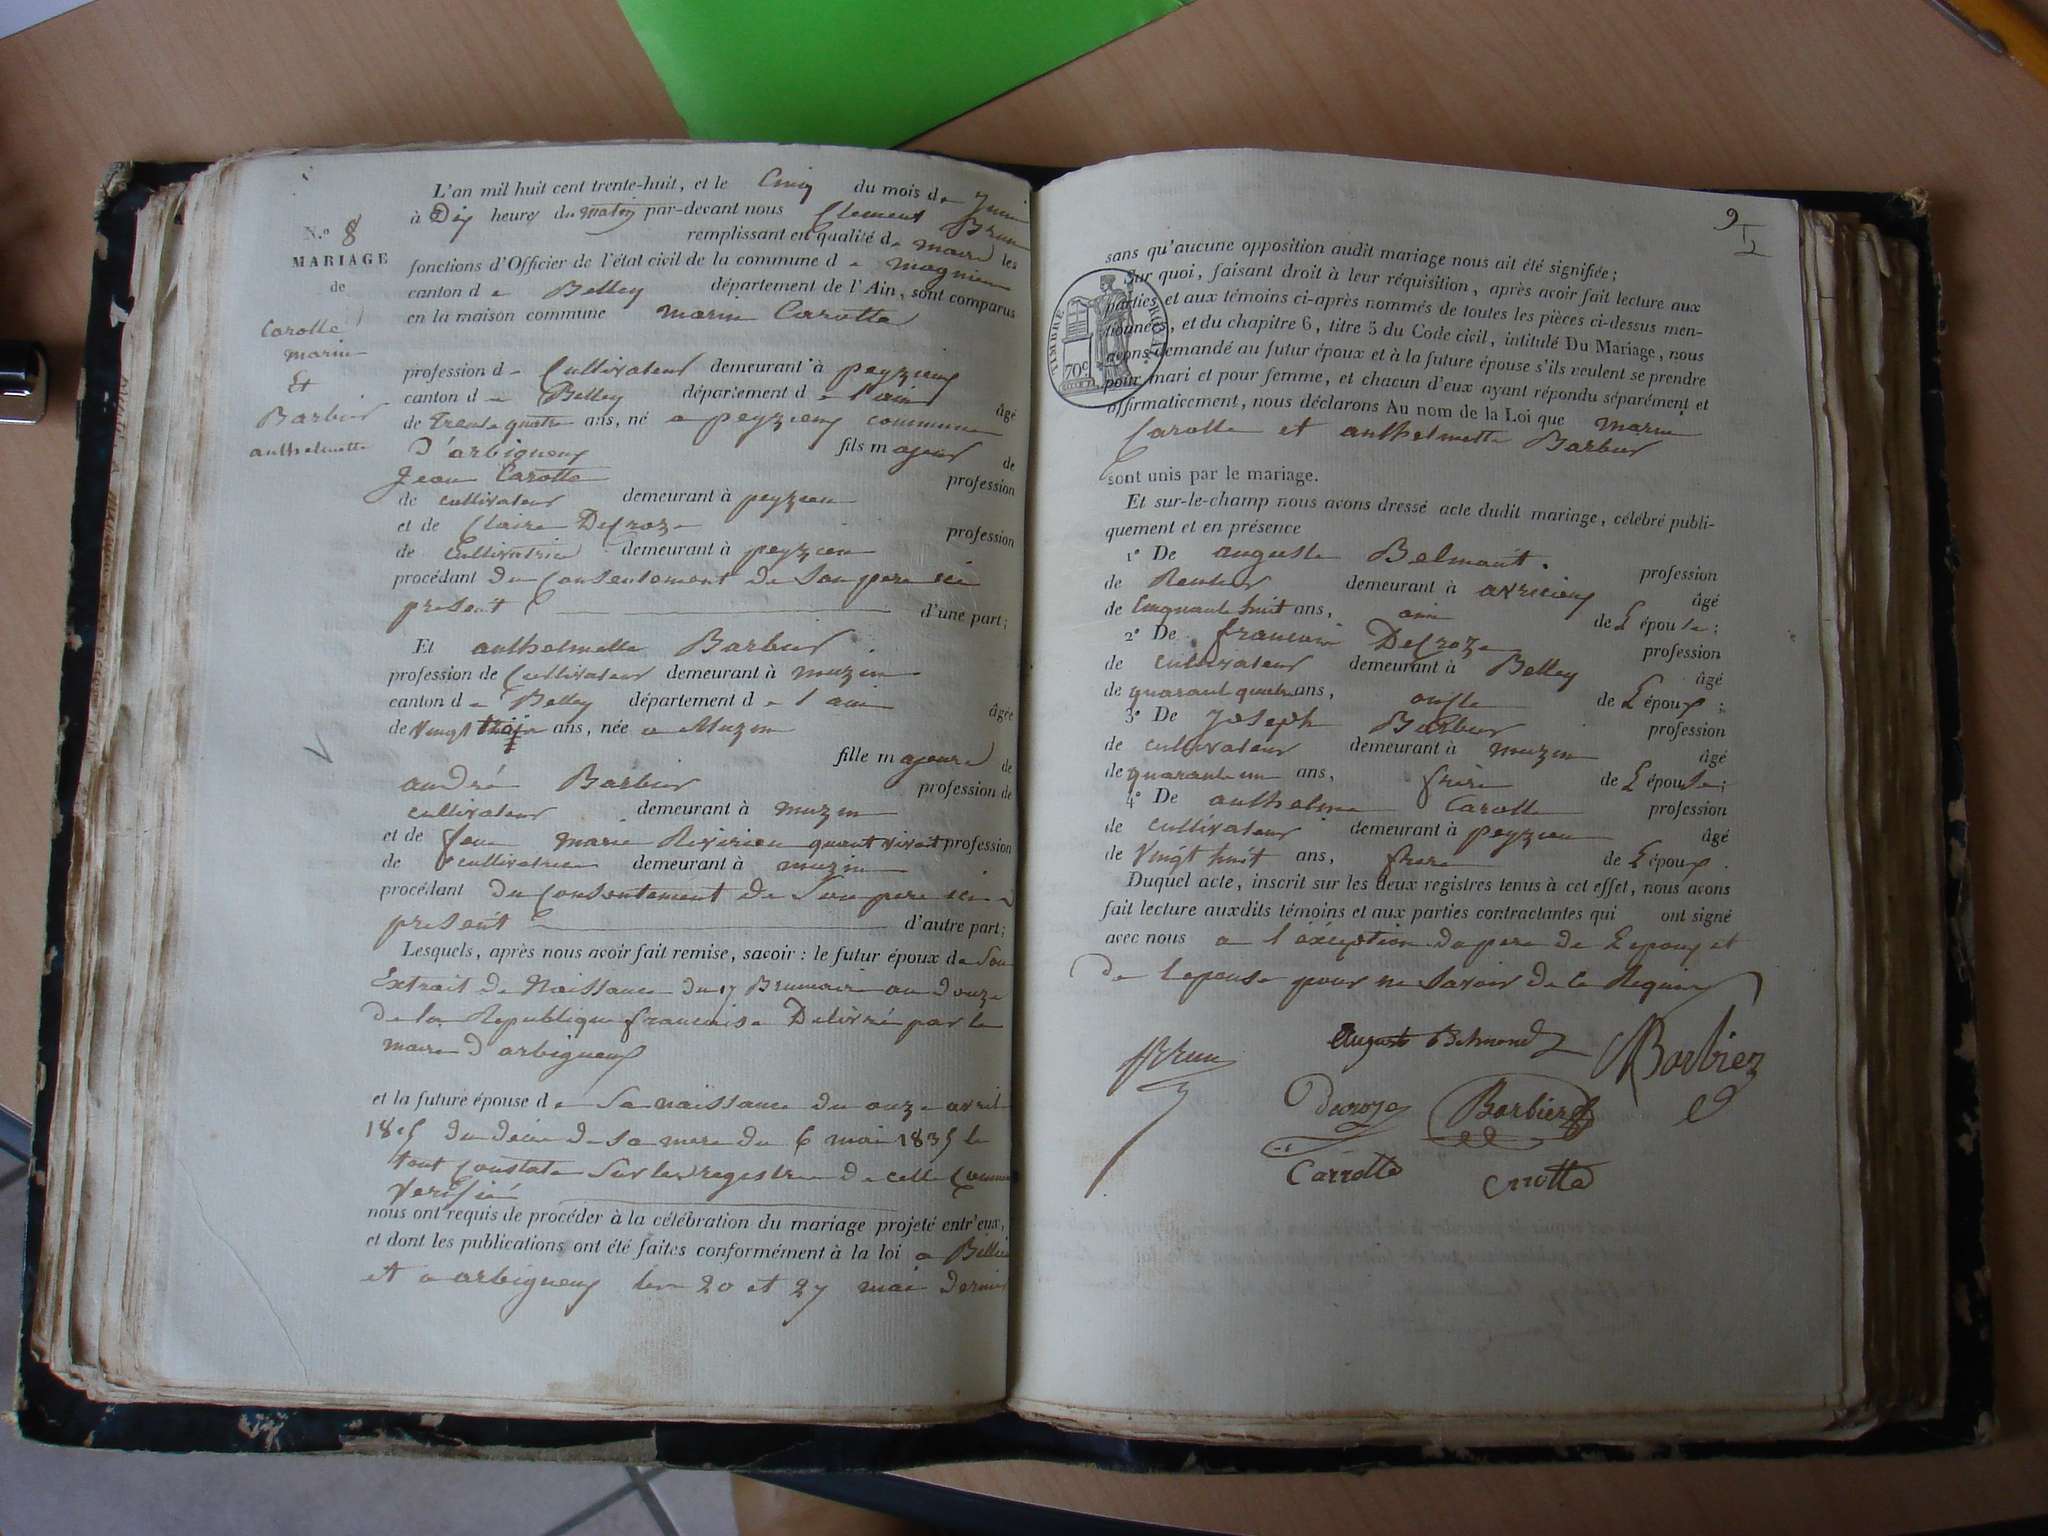 N.º 8
MARIAGE
de
Carotte
marin
Et
Barbier
anthelmette
L'an mil huit cent trente-huit, et le Cinq du mois de Juin
à Dix heures du matin par-devant nous Clement Brun
remplissant en qualité de maire les
fonctions d'Officier de l'état civil de la commune de magnieu
canton de Belley département de l'Ain, sont comparus
en la maison commune marin Carotte
profession de Cultivateur demeurant à peyzieu
canton de Belley département de l'ain âgé
de trente quatre ans, né a peyzieu commune
D'arbigneu fils majeur de
Jean Carotte profession
de cultivateur demeurant à peyzieu
et de Claire DeCroze profession
de Cultivatrice demeurant à peyzieu
procédant du Consentement de Son pere ici
present d'une part;
Et anthelmette Barbier
profession de Cultivateur demeurant à muzin
canton de Belley département de l'ain âgée
de vingt trois ans, née a Muzin
fille majeure de
andré Barbier profession de
cultivateur demeurant à muzin
et de feue marie quant vivait profession
de cultivatrice demeurant à muzin
procédant du Consentement de Son pere ici
present d'autre part;
Lesquels, après nous avoir fait remise, savoir : le futur époux de Son
Extrait de Naissance du 17 Brumaire an douze
de la Republique francaise Délivré par le
maire d'arbigneu
et la future épouse de Sa naissance du onze avril
1815 du décès de sa mere du 6 mai 1835 le
tout Constaté Sur les registres de cette Commune
verifié
nous ont requis de procéder à la célébration du mariage projeté entr'eux,
et dont les publications ont été faites conformément à la loi a
et a arbigneu les 20 et 27 mai dernier
9
sans qu'aucune opposition audit mariage nous ait été signifiée;
Sur quoi, faisant droit à leur réquisition, après avoir fait lecture aux
parties et aux témoins ci-après nommés de toutes les pièces ci-dessus men-
tionnées, et du chapitre 6, titre 5 du Code civil, intitulé Du Mariage, nous
avons demandé au futur époux et à la future épouse s'ils veulent se prendre
pour mari et pour femme, et chacun d'eux ayant répondu séparément et
affirmativement, nous déclarons Au nom de la Loi que marin
Carotte et anthelmette Barbier
TIMBRE ROYAL
70c
sont unis par le mariage.
Et sur-le-champ nous avons dressé acte dudit mariage, célébré publi-
quement et en présence
1º De auguste Belmont. profession
de Rentier demeurant à avressieu âgé
de Cinquante huit ans, ami de L'épouse;
2º De francois DeCroze profession
de cultivateur demeurant à Belley âgé
de quarant quatre ans, oncle de L'époux;
3º De Joseph Barbier profession
de cultivateur demeurant à muzin âgé
de quarante un ans, frère de L'épouse;
4º De anthelme Carotte profession
de cultivateur demeurant à peyzieu âgé
de vingt huit ans, frere de L'époux.
Duquel acte, inscrit sur les deux registres tenus à cet effet, nous avons
fait lecture auxdits témoins et aux parties contractantes qui ont signé
avec nous a l'exéption du pere de L'epoux et
de l'epouse pour ne Savoir de ce Requis
Brun
Auguste Belmond
Barbier
Decroze
Barbier
Carrotte